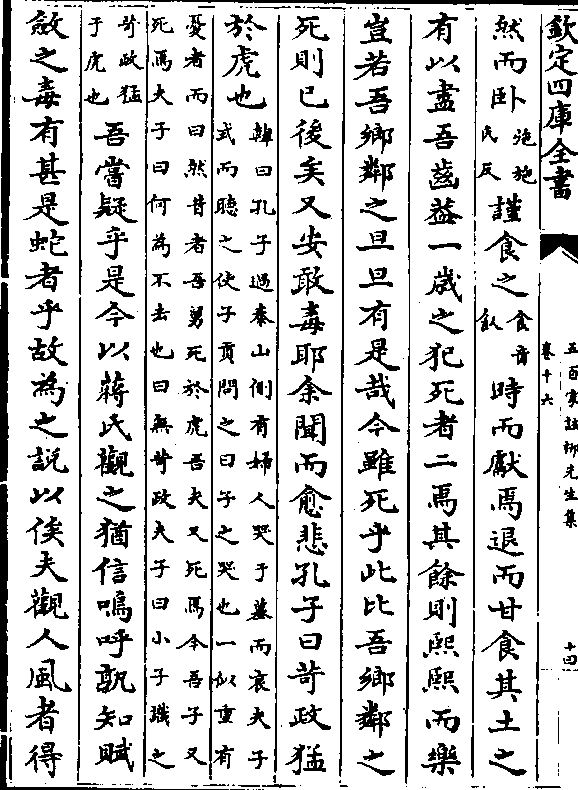 欽定四庫全書
五百家註柳先生集
卷十六
十四
然而卧弛施氏反謹食之食音飤時而獻焉退而甘食其土之
有以盡吾齒蓋一歲之犯死者二焉其餘則熙熙而樂
豈若吾鄉鄰之旦旦有是哉今雖死乎此比吾鄉鄰之
死則已後矣又安敢毒耶余聞而愈悲孔子曰苛政猛
於虎也韓曰孔子過泰山側有婦人哭于墓而哀夫子
式而聽之使子貢問之曰子之哭也一似重有
憂者而曰然昔者吾舅死於虎吾夫又死焉今吾子又
死焉夫子曰何為不去也曰無苛政夫子曰小子識之
苛政猛于虎也吾嘗疑乎是今以蔣氏觀之猶信嗚呼孰知賦
斂之毒有甚是蛇者乎故為之説以俟夫觀人風者得